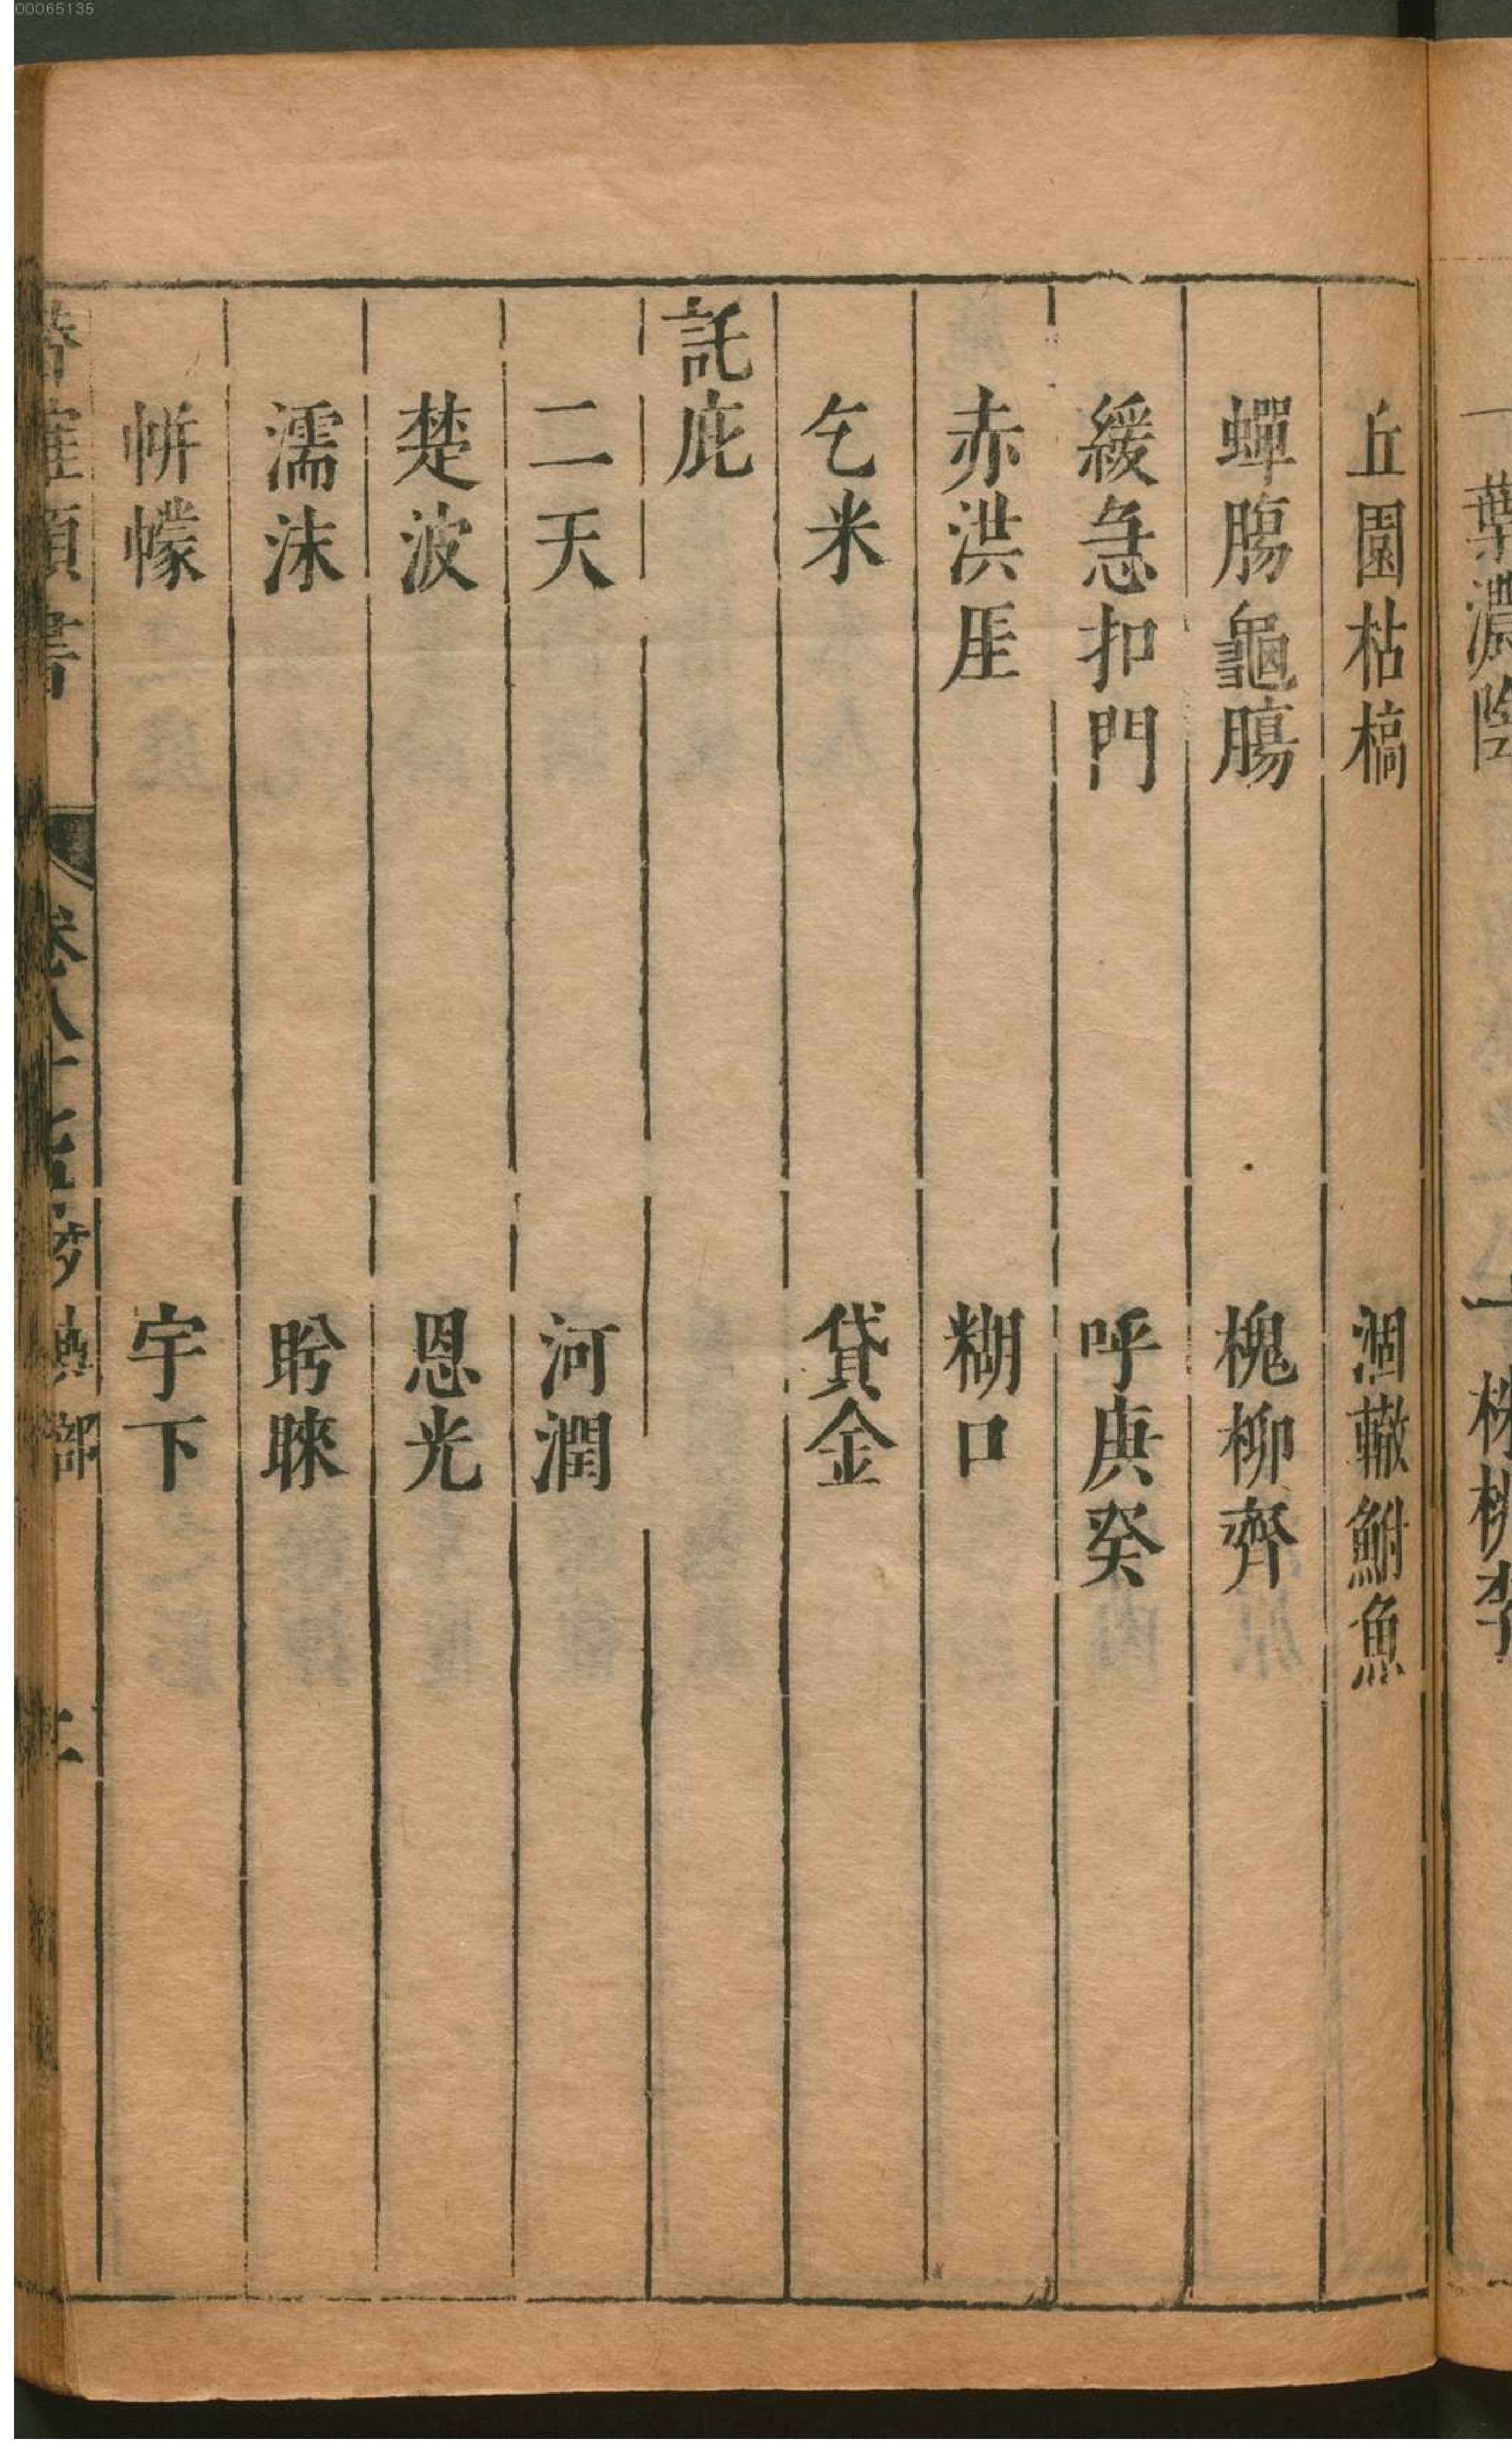 00065135
一葉濃陰
一株桃李
丘園枯槁
涸轍鮒魚
蟬腸龜腸
槐柳齊
緩急扣門
呼庚癸
赤洪厓
糊口
乞米
貸金
託庇
二天
河潤
楚波
恩光
濡沫
盻睞
帡幪
宇下
類書
卷八十五
部